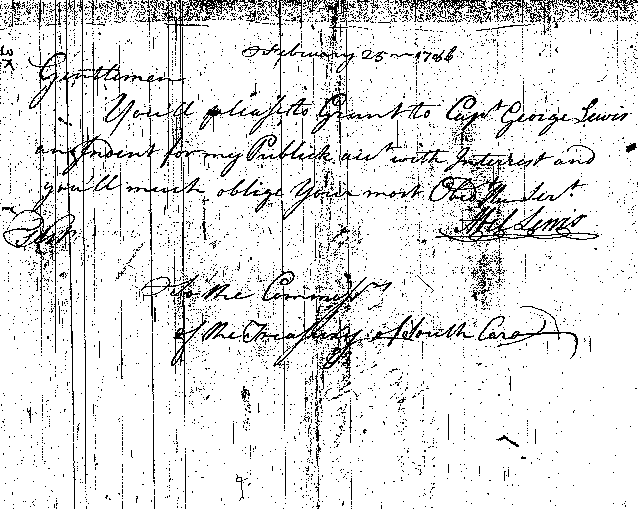 February 25th 1786
Gentlemen
You'll please to Grant to Capt George Lewis
an Indent for my Publick acct with Interrest and
you'll much oblige Your most Obedt Hu Servt
Lewis
To the Commissrs
of the Treasury of South Caro